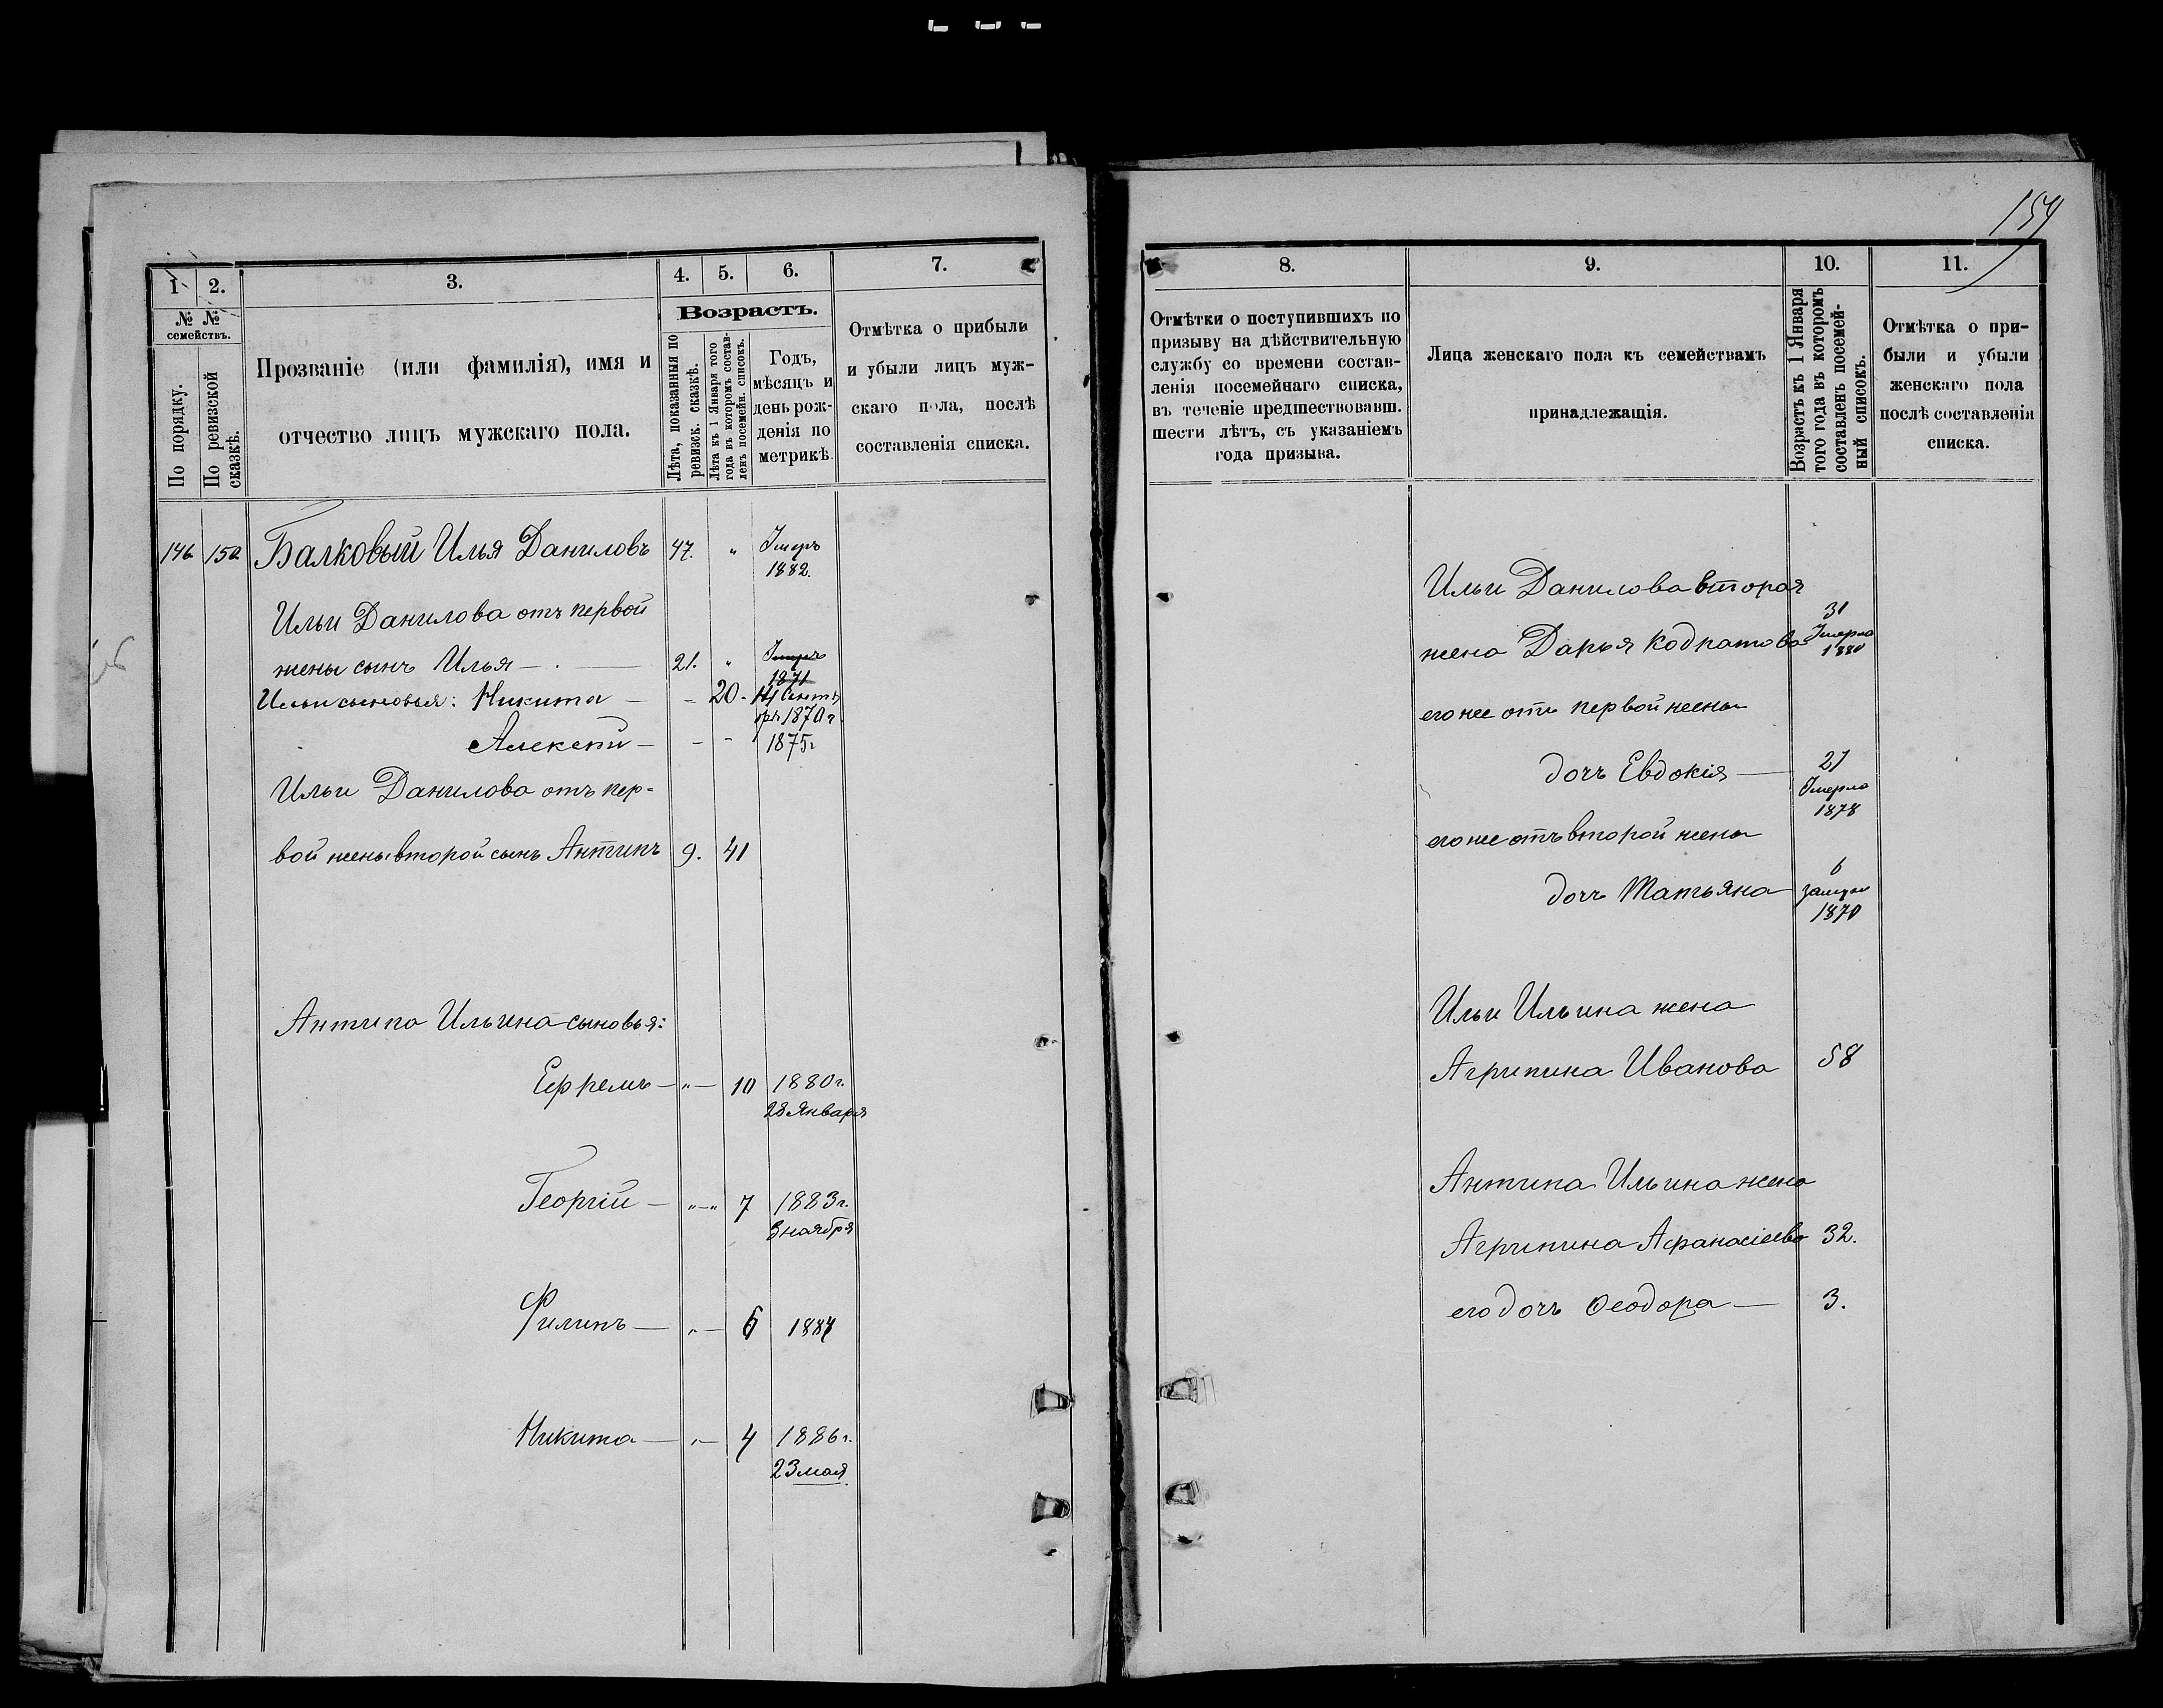 159
1
2.
3.
4.
5.
6.
7.
№ №
семействъ.
По порядку.
По ревизской
сказкѣ.
Прозваніе (или фамилія), имя и
отчество лицъ мужскаго пола.
Возрастъ.
Лѣта, показанныя по
ревизск. сказкѣ.
Лѣта къ 1 Января того
года въ которомъ состав-
ленъ посемейн. списокъ.
Годъ,
мѣсяцъ и
день рож-
денія по
метрикѣ.
Отмѣтка о прибыли
и убыли лицъ муж-
скаго пола, послѣ
составленія списка.
146 150 Балковый Илья Даниловъ 47. „ Умеръ
1882.
Ильи Данилова отъ первой
жены сынъ Илья — 21. „ Умеръ
1871
Ильи сыновья: Никита — - 20 - 14 Сентя
бря 1870 г
Алексѣй — - - 1875 г
Ильи Данилова отъ пер-
вой жены второй сынъ Антипъ 9. 41
Антипа Ильина сыновья:
Ефремъ — „ — 10 1880 г.
28 Января
Георгій — „—„ 7 1883 г.
3 ноября
Филипъ — „ — 6 1884
Никита — „ — 4 1886 г.
23 мая
8.
9.
10.
11.
Отмѣтки о поступившихъ по
призыву на дѣйствительную
службу со времени состав-
ленія посемейнаго списка,
въ теченіе предшествовавш.
шести лѣтъ, съ указаніемъ
года призыва.
Лица женскаго пола къ семействамъ
принадлежащія.
Возрастъ къ 1 Января
того года въ которомъ
составленъ посемей-
ный списокъ.
Отмѣтка о при-
были и убыли
женскаго пола
послѣ составленія
списка.
Ильи Данилова вторая
жена Дарья Кодратова 31
Умерла
1880
его же отъ первой жены
дочь Евдокія — 21
Умерла
1878
его же отъ второй жены
дочь Татьяна 6
замуж
1870
Ильи Ильина жена
Агрипина Иванова 58
Антипа Ильина жена
Агрипина Афанасіева 32.
его дочь Феодора — 3.